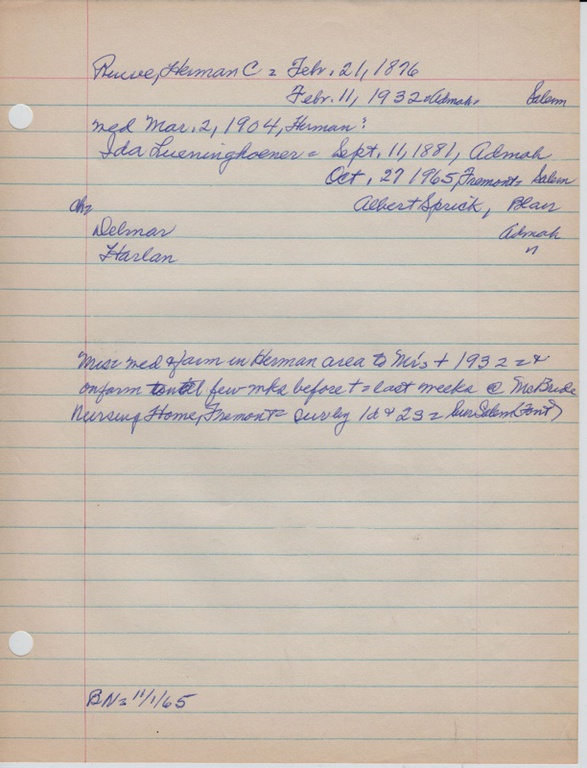 Ruwe, Herman C = Febr. 21, 1876
Febr. 11, 1932 = Admah. Salem
Med Mar. 2, 1904, Herman?
Ida Lueninghoener = Sept. 11, 1881, Admah
Oct. 27 1965, Fremont = Salem
Ch= Albert Sprick, Blair
Delmar Admah
Harlan "
Misc Med & farm in Herman area to His + 1932 = &
on farm until few wks before + = last weeks @ McBride
Nursing Home, Fremont = Surv by 1d & 2s = Salem (Font)
BN = 11/1/65